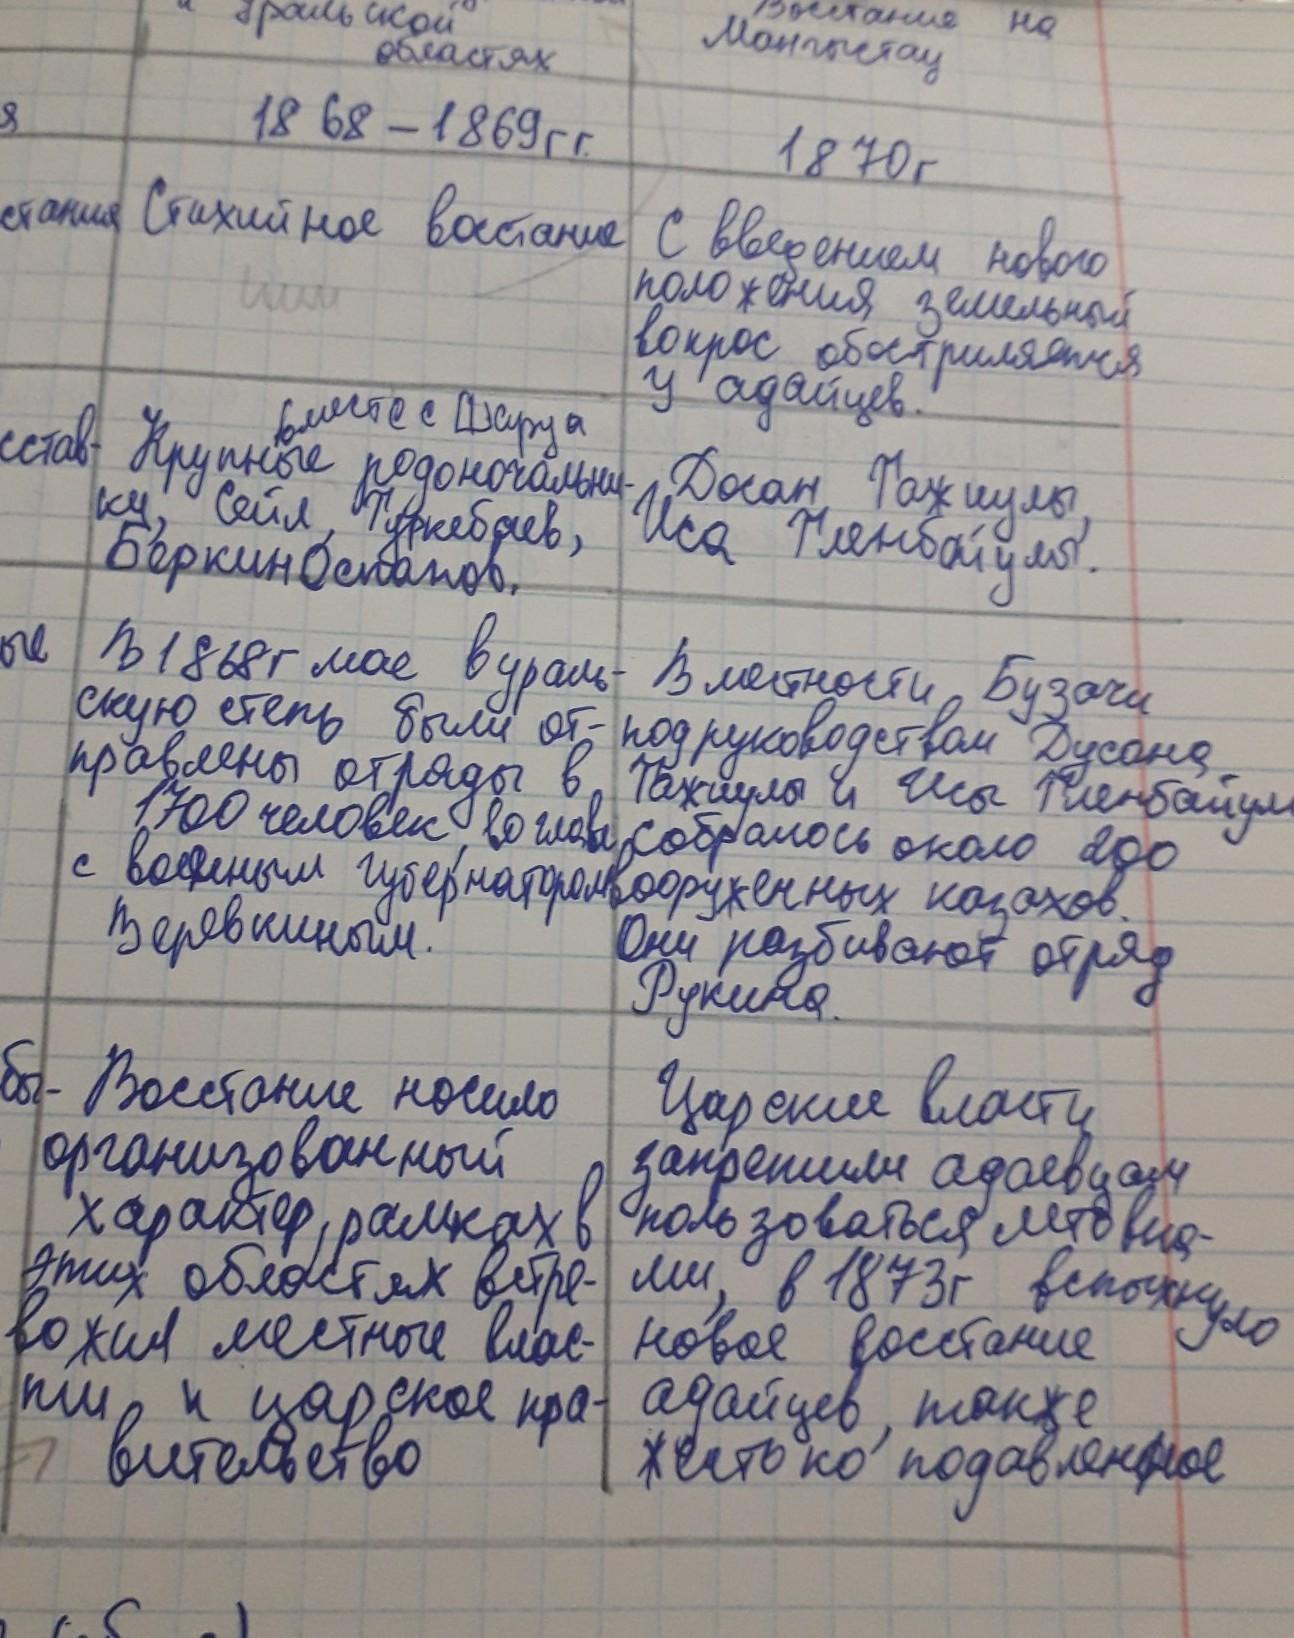 и Уральской
областях
Восстание на
Мангыстау
я
1868-1869гг.
1870г
стания
Стихийное восстание
С введением нового
положения земельный
вопрос обостриляется
у адайцев.
сстав-
вместе с Шаруа
Крупные родоночальни-
ки, Сейл, Туркебаев,
Беркин Останов.
Досан Тажиулы,
Иса Тленбайулы.
ые
В 1868г мае в ураль-
скую степь были от-
правлены отряды в
1700 человек, во главе
с военным губернатором
Веревкиным.
В местности Бузачи
под руководством Дусана
Тажиулы и Исы Тленбайулы
собралось около 200
вооруженных казахов.
Они разбивают отряд
Рукина.
бы-
Восстание носило
организованный
характер, рамках в
этих областях встре-
вожил местные влас-
ти, и царское пра-
вительство
Царские власти
запретили адаевцам
пользоваться летовка-
ми, в 1873г вспыхнуло
новое восстание
адайцев, также
жестоко подавленное